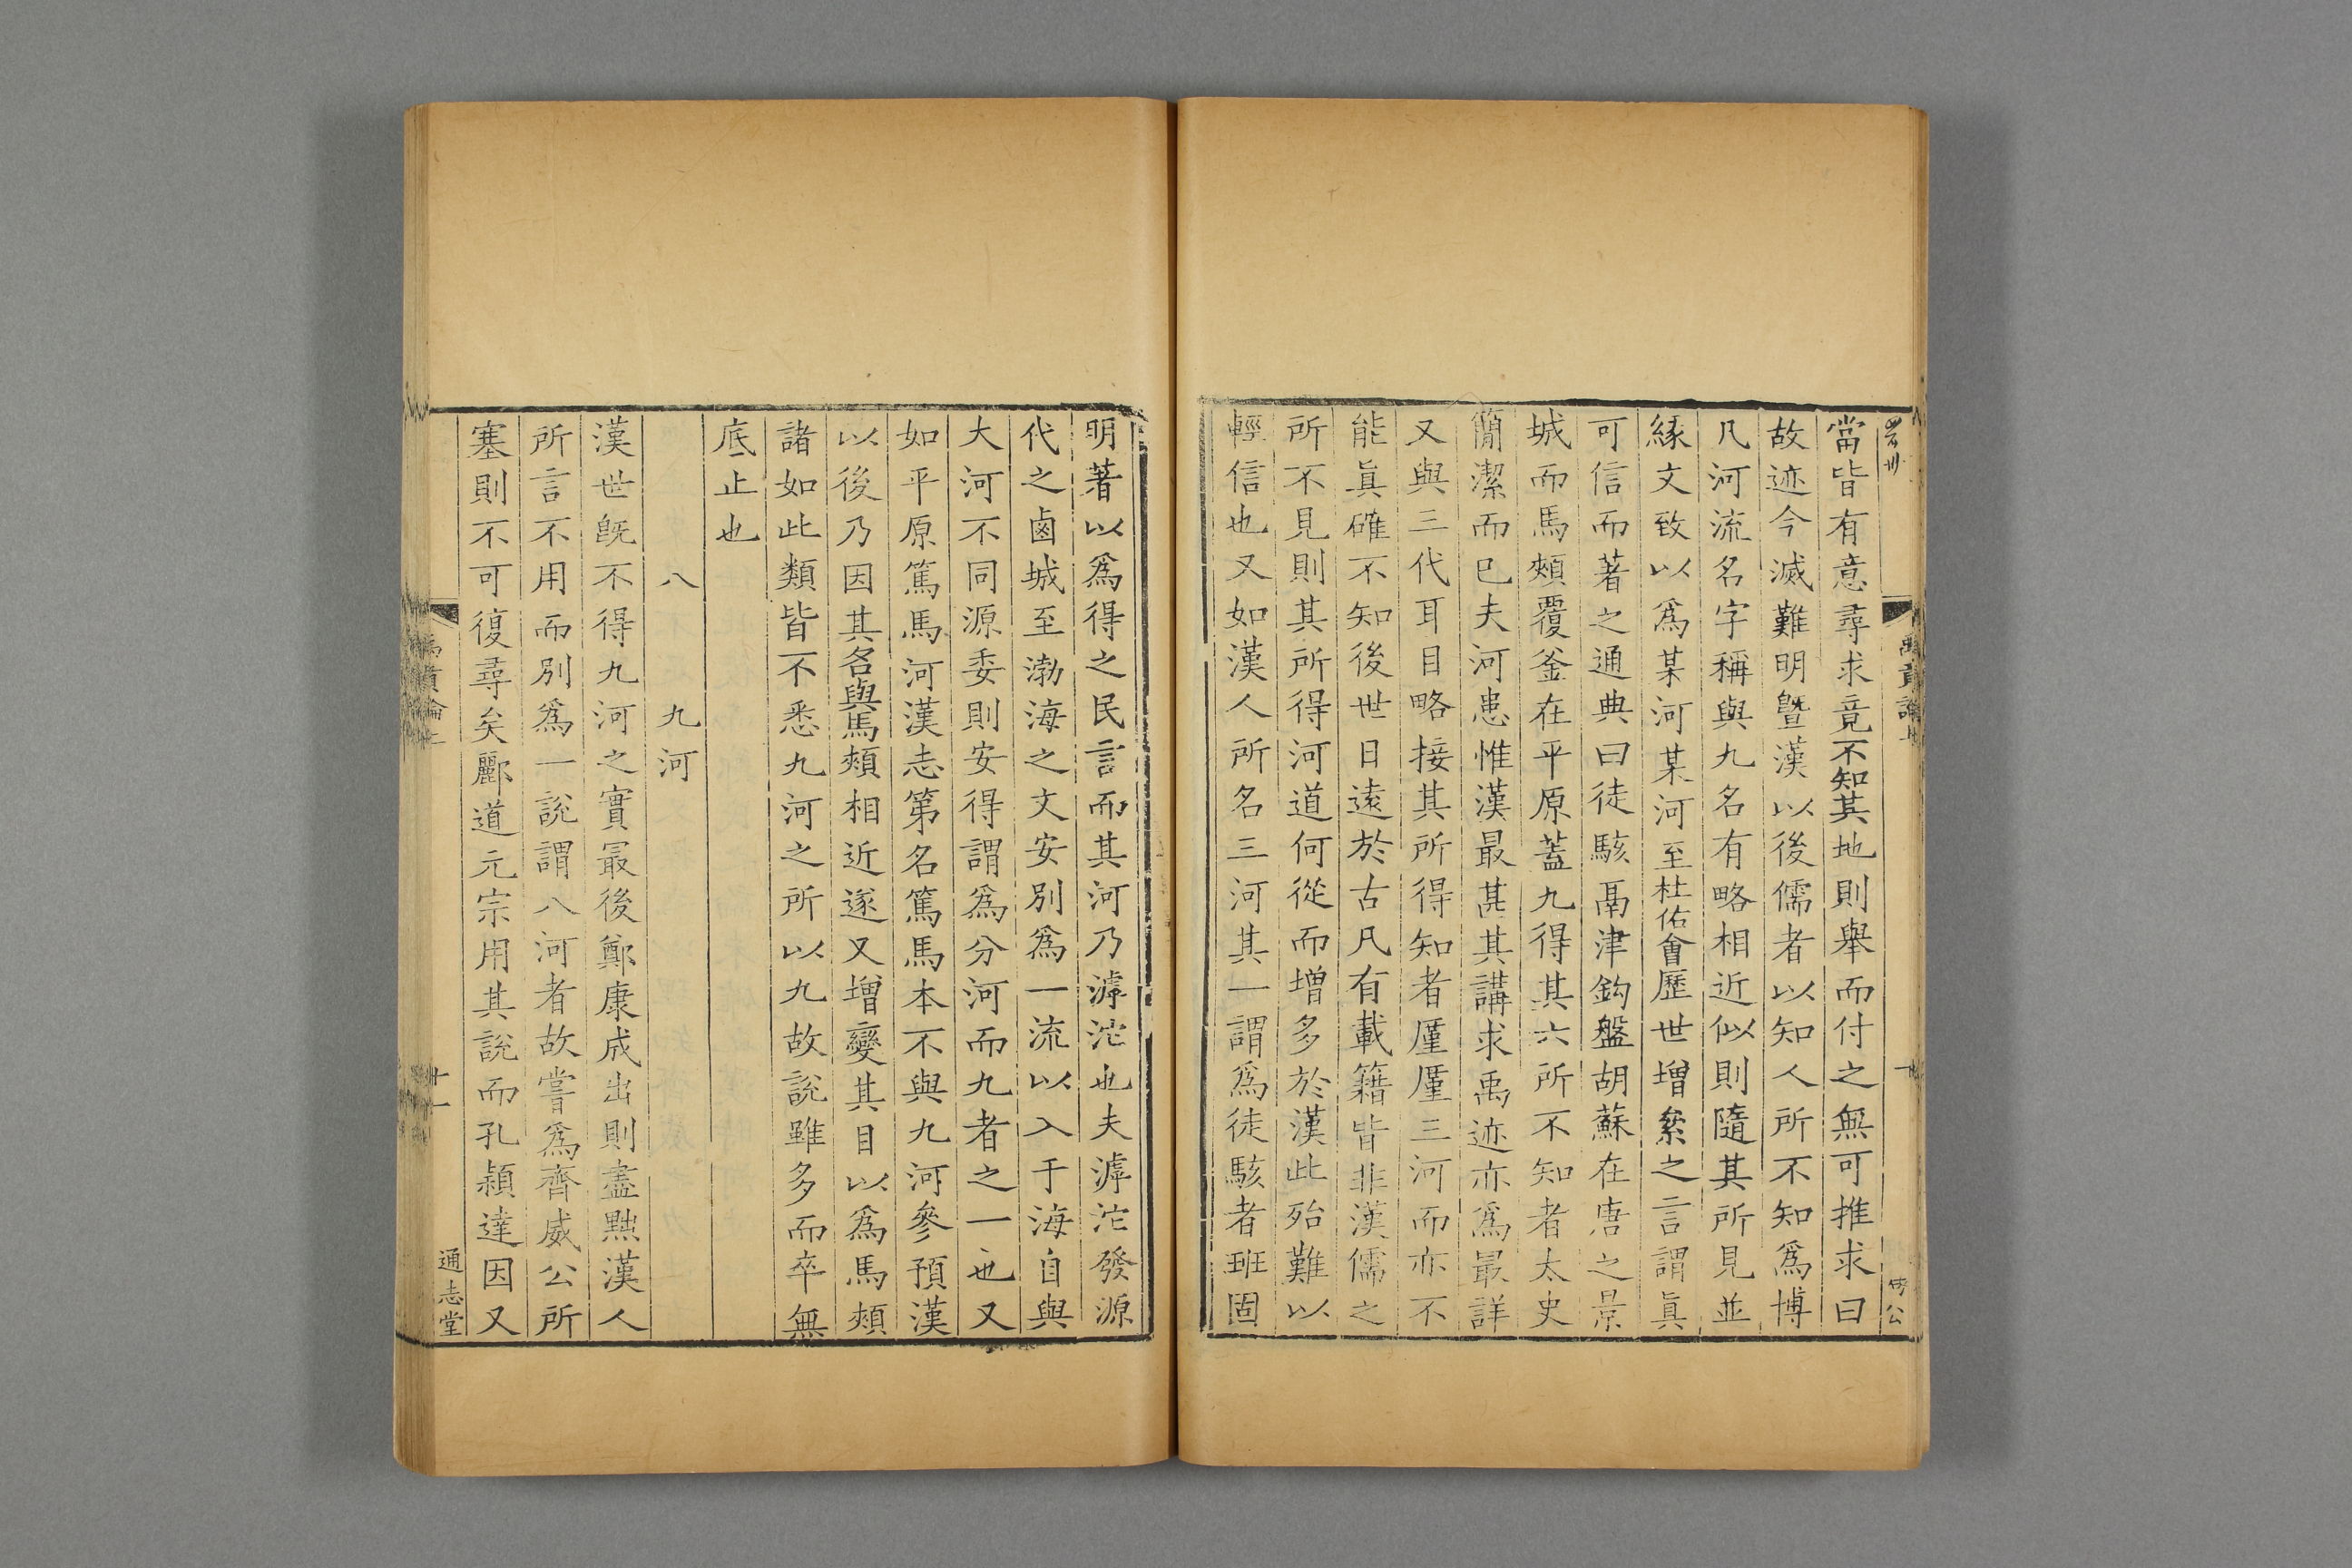 當皆有意尋求竟不知其地則舉而付之無可推求曰
故迹今滅難明曁漢以後儒者以知人所不知爲博
凡河流名字稱與九名有略相近似則隨其所見並
緣文致以爲某河某河至杜佑會歷世增絫之言謂眞
可信而著之通典曰徒駭鬲津鈎盤胡蘇在唐之景
城而馬頰覆釜在平原蓋九得其六所不知者太史
簡潔而已夫河患惟漢最甚其講求禹迹亦爲最詳
又與三代耳目略接其所得知者厪厪三河而亦不
能眞確不知後世日遠於古凡有載籍皆非漢儒之
所不見則其所得河道何從而增多於漢此殆難以
輕信也又如漢人所名三河其一謂爲徒駭者班固
明著以爲得之民言而其河乃滹沱也夫滹沱發源
代之鹵城至渤海之文安別爲一流以入于海自與
大河不同源委則安得謂爲分河而九者之一也又
如平原篤馬河漢志第名篤馬本不與九河參預漢
以後乃因其名與馬頰相近遂又增變其目以爲馬頰
諸如此類皆不悉九河之所以九故說雖多而卒無
底止也
八 九河
漢世旣不得九河之實最後鄭康成出則盡黜漢人
所言不用而別爲一說謂八河者故嘗爲齊威公所
塞則不可復尋矣酈道元宗用其說而孔穎達因又
禹貢論上
十一
通志堂